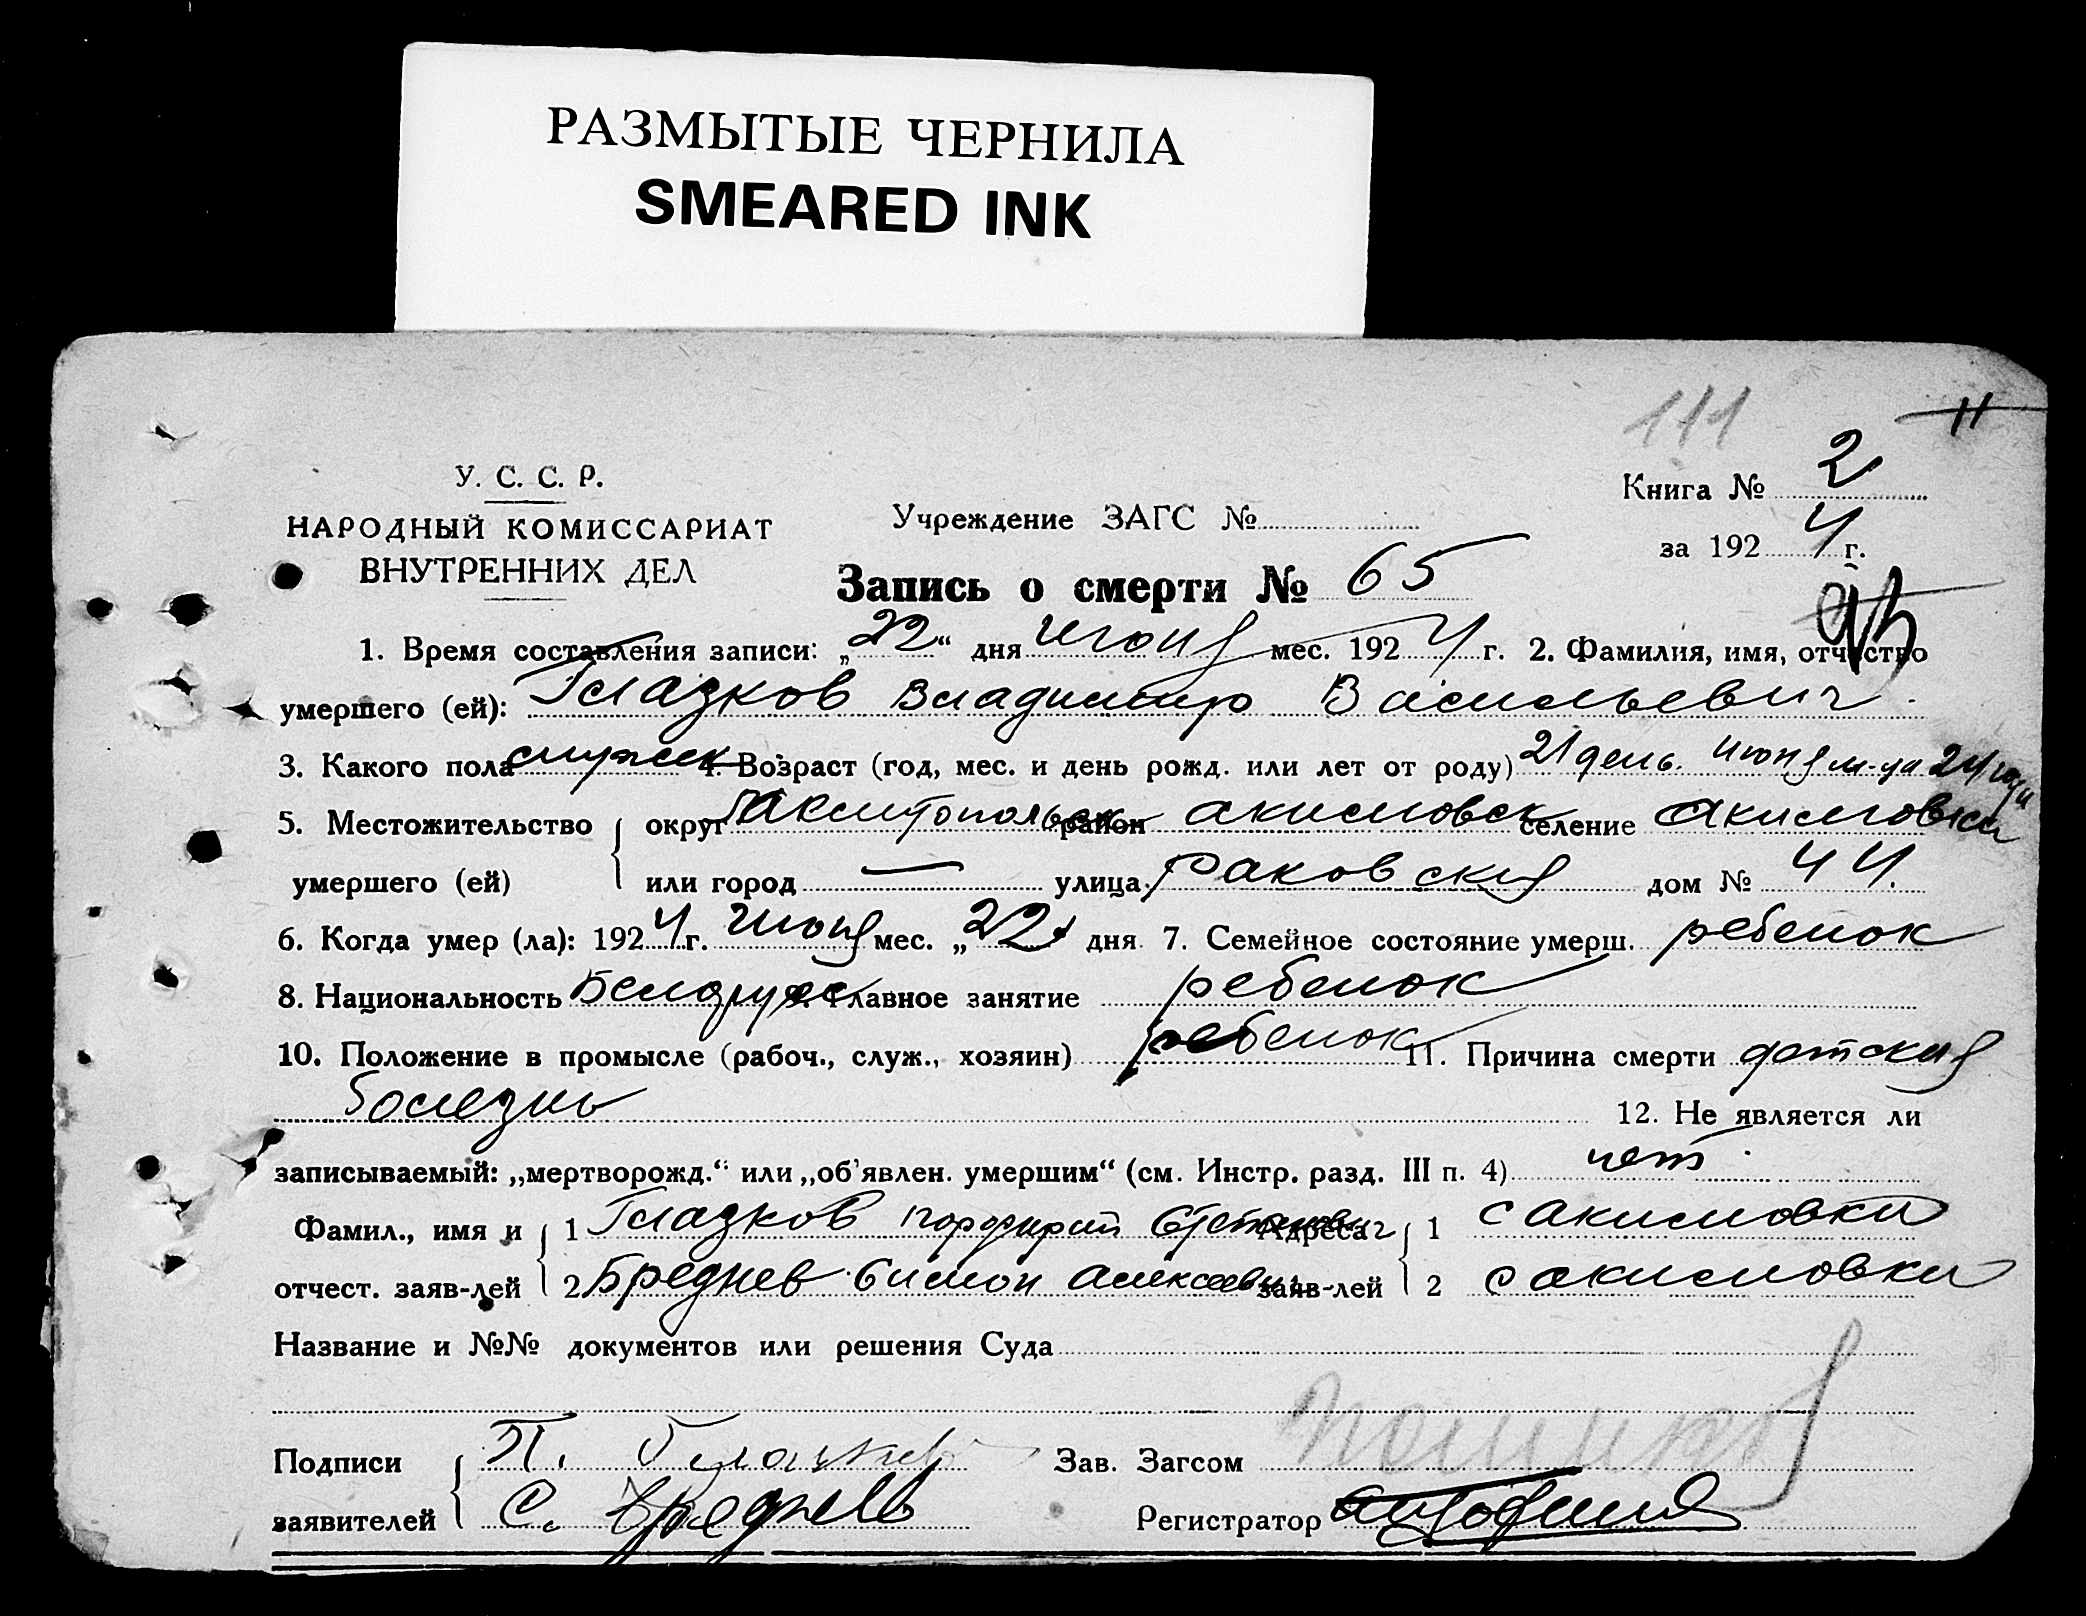 РАЗМЫТЫЕ ЧЕРНИЛА
SMEARED INK
111
11
У. С. С. Р.
НАРОДНЫЙ КОМИССАРИАТ
ВНУТРЕННИХ ДЕЛ
Учреждение ЗАГС №
Книга № 2
за 1924 г.
Запись о смерти № 65
1. Время составления записи: „22“ дня июня мес. 1924 г. 2. Фамилия, имя, отчество
умершего (ей): Глазков Владимир Васильевич
3. Какого пола мужск 4. Возраст (год, мес. и день рожд. или лет от роду) 21 день. июня м-ца 24 года
5. Местожительство округ район акимовск селение Акимовка
умершего (ей) или город — улица раковския дом № 44.
6. Когда умер (ла): 1924 г. июня мес. „22“ дня 7. Семейное состояние умерш. ребенок
8. Национальность Белорус 9. Главное занятие ребенок
10. Положение в промысле (рабоч., служ., хозяин) ребенок 11. Причина смерти детския
болезнь
12. Не является ли
записываемый: „мертворожд.“ или „об'явлен. умершим“ (см. Инстр. разд. III п. 4) нет
Фамил., имя и 1 Глазков порфирий Адреса 1 с акимовки
отчест. заяв-лей 2 Бреднев Симон Алексеевич заяв-лей 2 с акимовки
Название и №№ документов или решения Суда
Подписи П. Глазков Зав. Загсом
заявителей С. Бреднев Регистратор